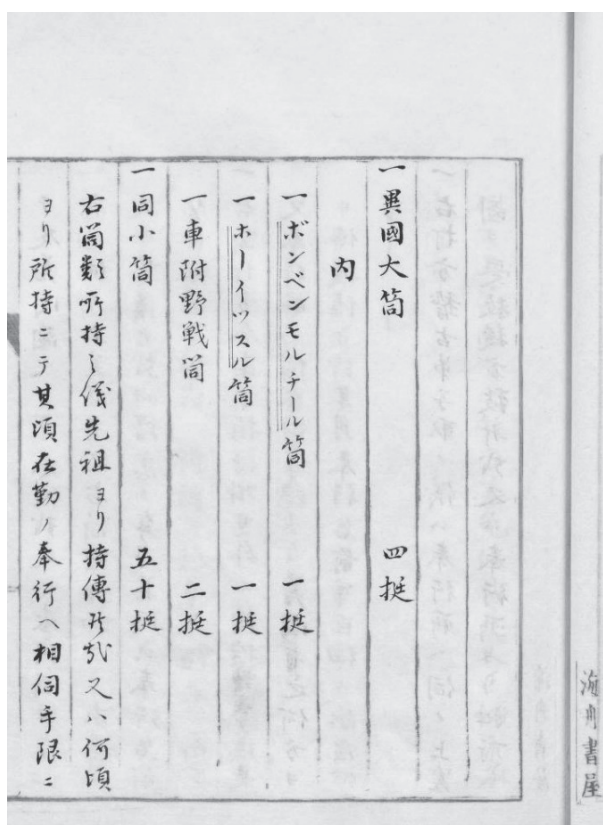 一異國大筒　四挺
内
一ボンベンモルチール筒　一挺
一ホーイッスル筒　一挺
一車附野戰筒　二挺
一同小筒　五十挺
右筒類所持之儀先祖ヨリ持傳候哉又ハ何頃
ヨリ所持ニテ其頃在勤ノ奉行ヘ相伺手限ニ
海舟書屋